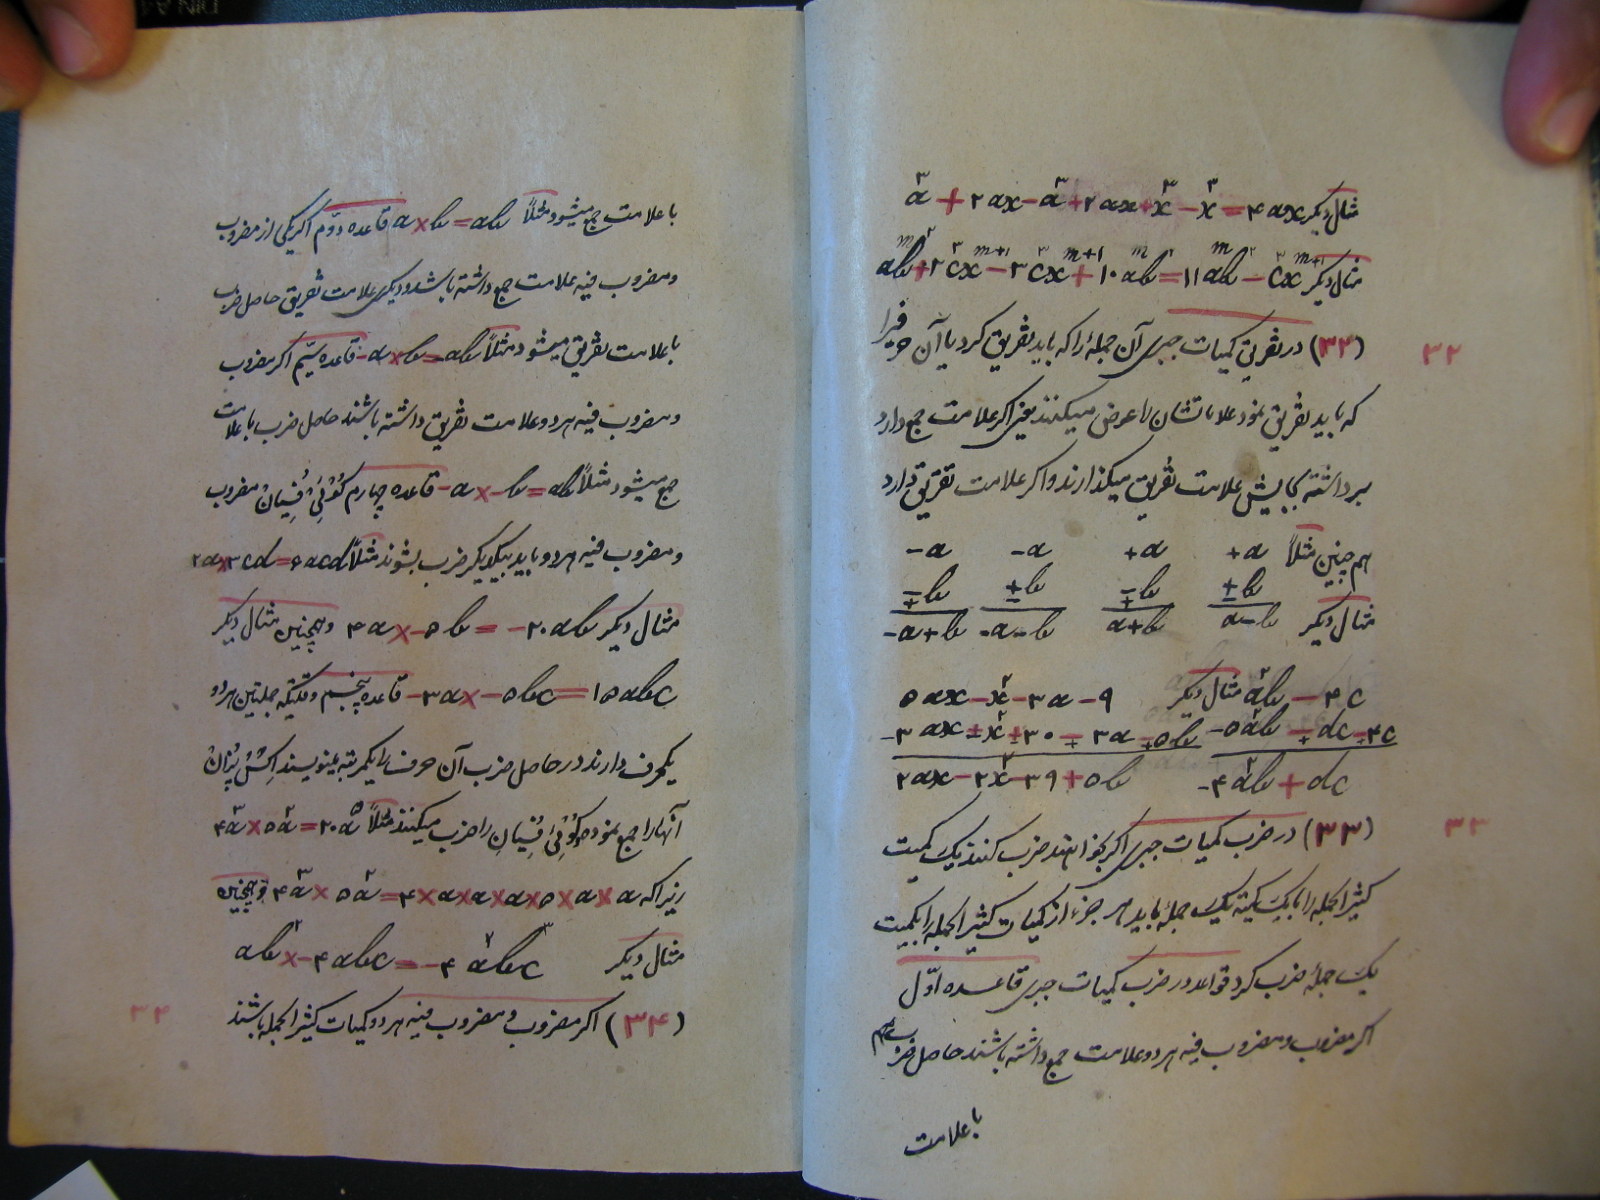 مثال دیگر a³ + ۲ax − a³ + ۲ax + x³ − x³ = ۴ax
مثال دیگر abᵐ + ۲cxᵐ⁺¹ − ۳cxᵐ⁺¹ + ۱۰abᵐ = ۱۱abᵐ − cxᵐ⁺¹
۳۲ (۳۲) در تفریق کمیات جبری آن جملهٔ را که باید تفریق کرد با آن
که باید تفریق نمود علاماتشان را عوض میکنند یعنی اگر علامت جمع دارد
برداشته بجایش علامت تفریق میگذارند و اگر علامت تفریق دارد
هم چنین مثلاً +a +a −a −a
±b ∓b ±b ∓b
مثال دیگر a−b a+b −a−b −a+b
a²b − ۴c مثال دیگر ۵ax − x² − ۳a − ۹
−۵a²b ∓ dc ∓ ۴c −۳ax ± x² ± ۳۰ ∓ ۳a ∓ ۵b
−۴a²b + dc ۲ax − ۲x² − ۳۹ + ۵b
۳۳ (۳۳) در ضرب کمیات جبری اگر بخواهند ضرب کنند یک کمیت
کثیرالجمله را با یک کمیته یک جملهٔ باید هر جزء از کمیات کثیرالجمله را بکمیت
یک جملهٔ ضرب کرد قواعد در ضرب کمیات جبری قاعده اوّل
اگر مضروب و مضروب فیه هر دو علامت جمع داشته باشند حاصل ضرب هم
با علامت
با علامت جمع میشود مثلاً a×b=ab قاعده دوّم اگر یکی از مضروب
و مضروب فیه علامت جمع داشته باشد و دیگری علامت تفریق حاصل ضرب
با علامت تفریق میشود مثلاً −a×b=ab قاعده سیّم اگر مضروب
و مضروب فیه هر دو علامت تفریق داشته باشند حاصل ضرب با علامت
جمع میشود مثلاً −a×−b=ab قاعده چهارم کُوئِفیسیان مضروب
و مضروب فیه هر دو باید بیکدیگر ضرب بشوند مثلاً ۲a×۳cd=۶acd
مثال دیگر ۴a×−۵b=−۲۰ab و همچنین مثال دیگر
−۳a×−۵bc=۱۵abc قاعده پنجم وقتیکه جملتین هر دو
یکحرف دارند در حاصل ضرب آن حرف را یکمرتبه مینویسند اکسپزان
آنها را جمع نموده کوئفیسیان را ضرب میکنند مثلاً ۴a³×۵a²=۲۰a⁵
زیرا که ۴a³×۵a²=۴×a×a×a×۵×a×a و همچنین
مثال دیگر ab²×−۴abc=−۴a²b³c
۳۴ (۳۴) اگر مضروب و مضروب فیه هر دو کمیات کثیرالجمله باشند